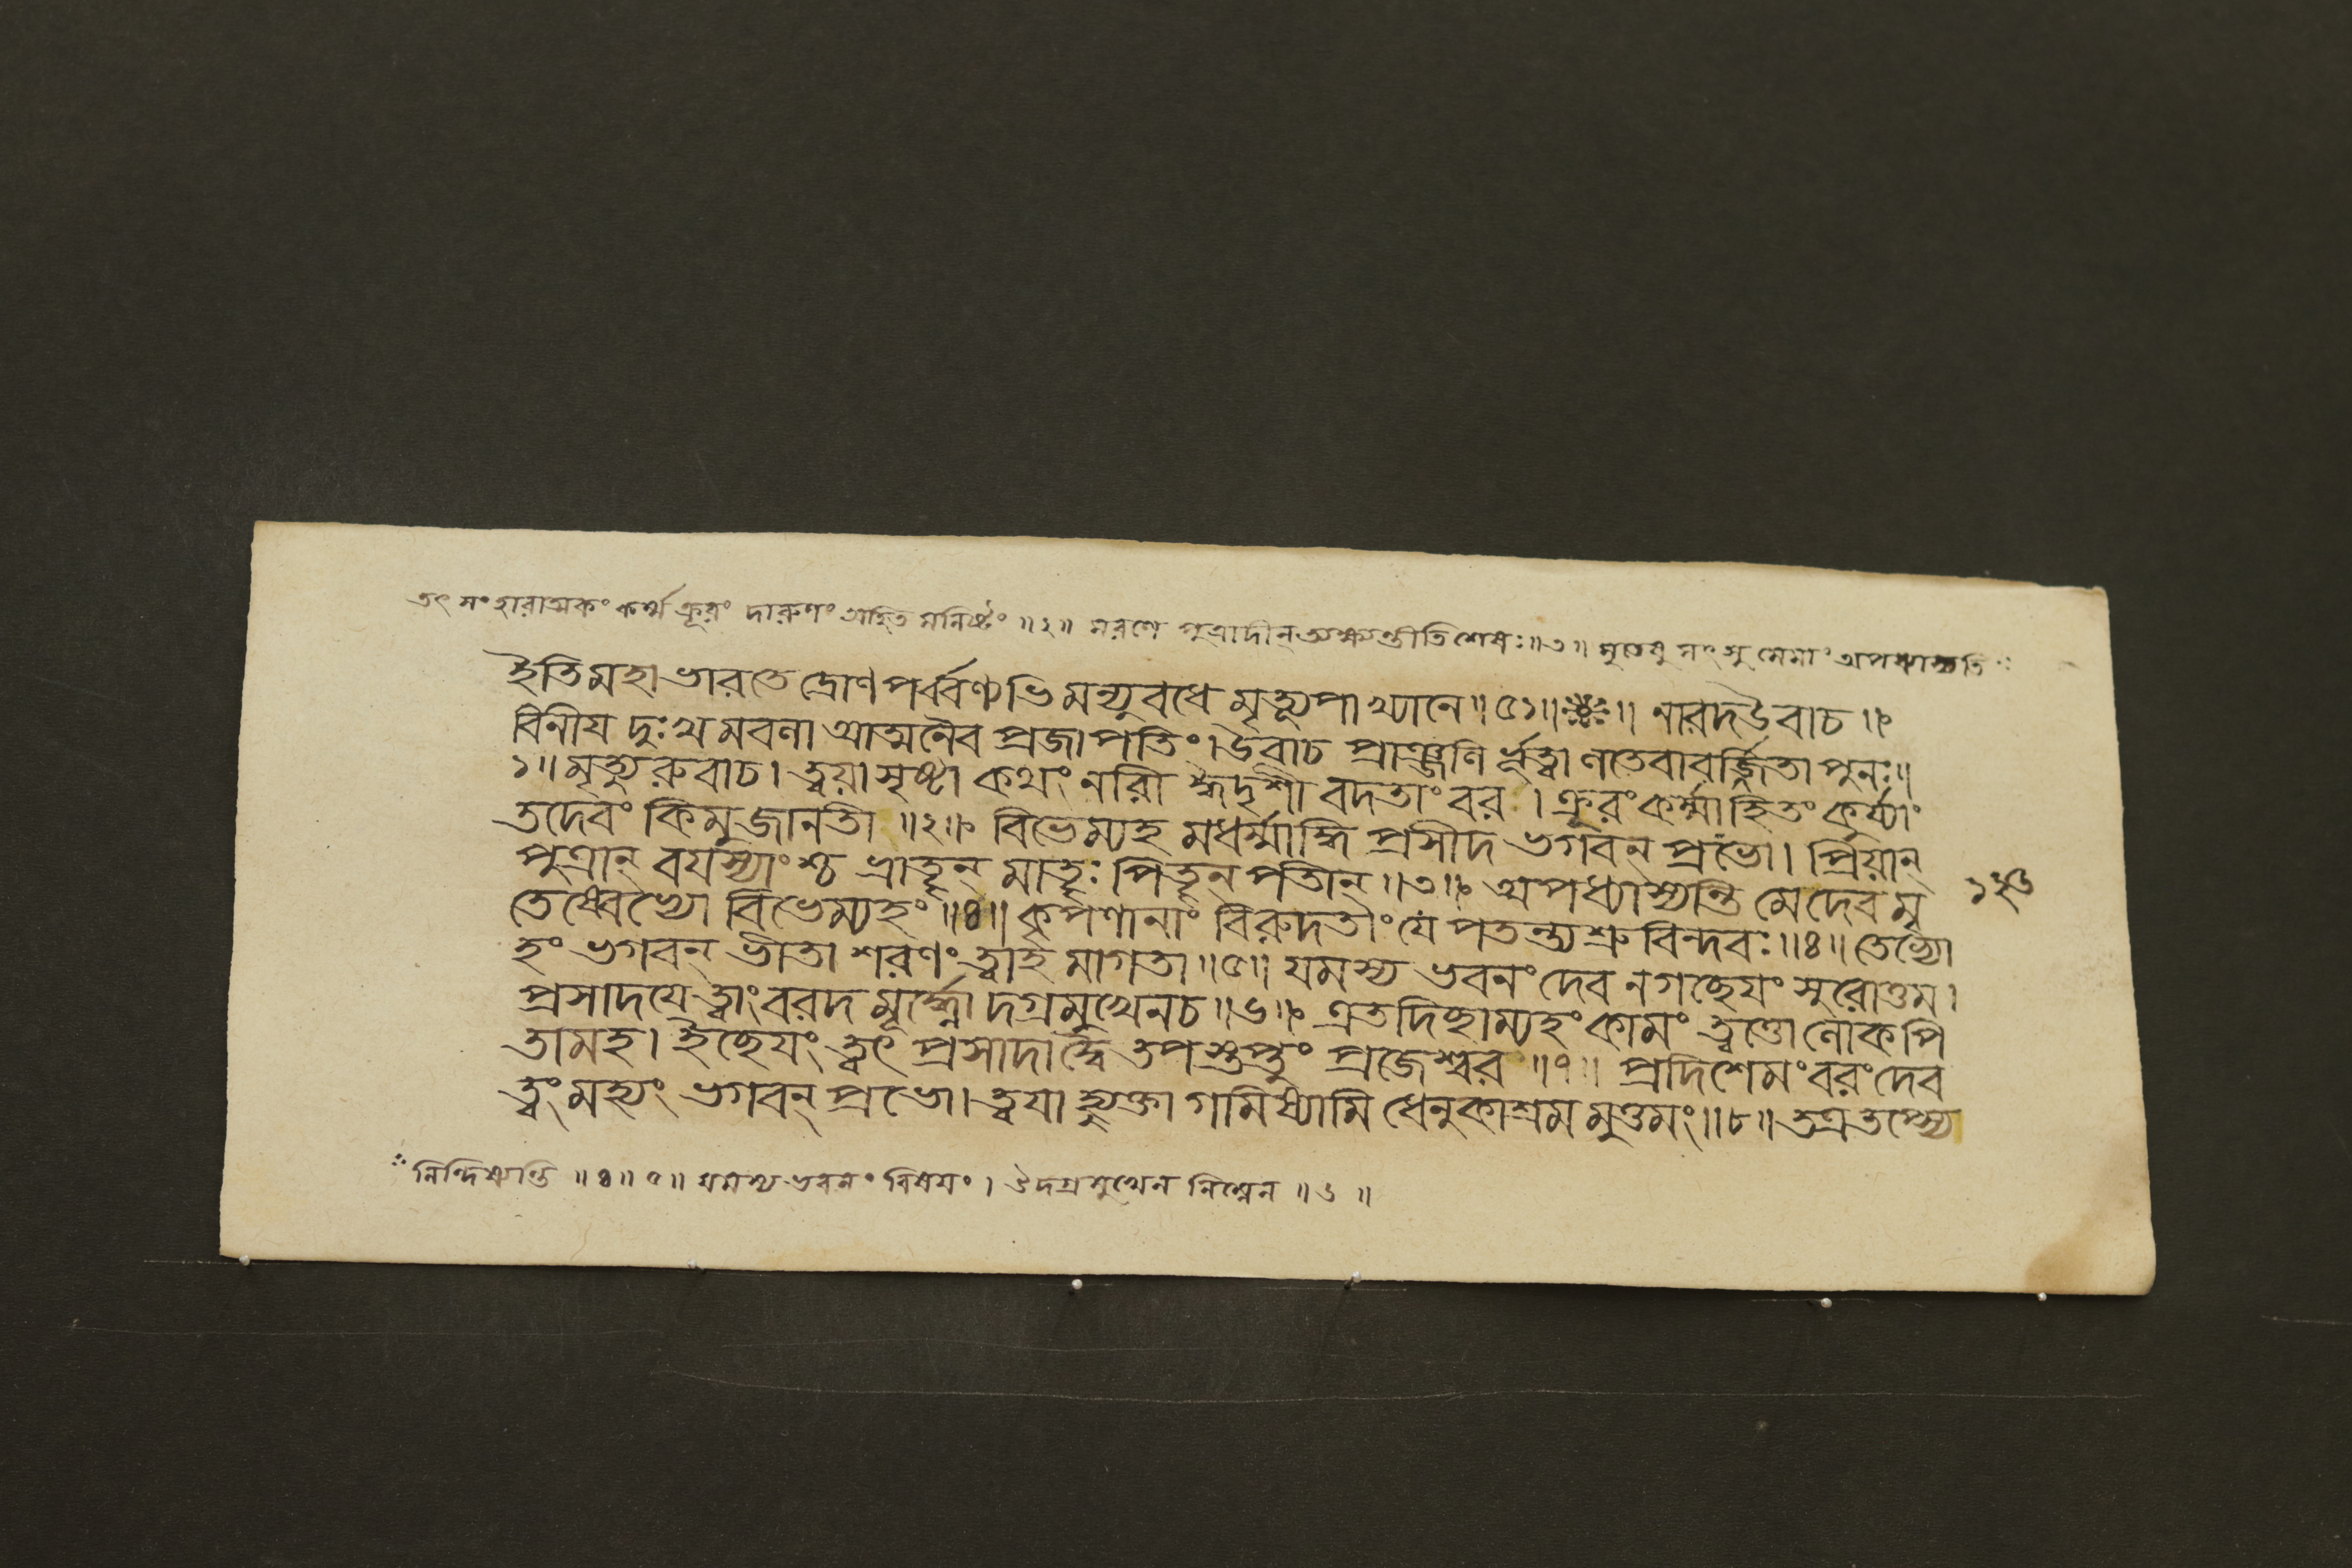 তৎ সংহারাত্মকং কর্ম্ম ক্রূরং দারুণং অহিত মনিষ্টং ॥২॥ মরণে পুত্রাদীন্ ত্যক্ষ্যন্তীতি শেষঃ॥৩॥ মৃতেষু সৎসু মেমাং অপধ্যাস্যতি
ইতি মহাভারতে দ্রোণপর্ব্বণ্যভিমন্যুবধে মৃত্যূপাখ্যানে॥৫১॥ ॥ নারদ উবাচ॥
বিনীয দুঃখ মবলা আত্মনৈব প্রজাপতিং। উবাচ প্রাঞ্জলি র্ভূত্বা লতেবাবর্জ্জিতা পুনঃ॥
১॥ মৃত্যু রুবাচ। ত্বয়া সৃষ্টা কথং নারী হ্মীদৃশী বদতাং বর। ক্রূরং কর্ম্মাহিতং কর্য্যাং
তদেবং কিমু জানতী ॥২॥ বিভেম্যহ মধর্ম্মাদ্ধি প্রসীদ ভগবন্ প্রভো। প্রিয়ান্
পুত্রান্ বযস্যাংশ্চ ভ্রাতৄন্ মাতৄঃ পিতৄন্ পতীন্॥৩॥ অপধ্যাস্যন্তি মে দেব মৃ ১২৩
তেষ্বেভ্যো বিভেম্যহং॥৪॥ কৃপণানাং বিরুদতাং যে পতন্ত্যশ্রুবিন্দবঃ॥৪॥ তেভ্যো
হং ভগবন্ ভীতা শরণং ত্বাহ মাগতা॥৫॥ যমস্য ভবনং দেব ন গচ্ছেযং সুরোত্তম।
প্রসাদযে ত্বাং বরদ মূর্দ্ধ্নো দগ্রমুখেন চ॥৬॥ এতদিচ্ছাম্যহং কামং ত্বত্তো লোকপি
তামহ। ইচ্ছেযং ত্বৎ প্রসাদাদ্ধৈ তপস্তপ্তুং প্রজেশ্বর ॥৭॥ প্রদিশেমং বরং দেব
ত্বং মহ্যং ভগবন্ প্রভো। ত্বযা হ্যুক্তা গমিষ্যামি ধেনুকাশ্রম মুত্তমং॥৮॥ তত্র তপ্স্যে
নিন্দিষ্যন্তি ॥৪॥৫॥ যমস্য ভবনং বিষযং। উদগ্রমুখেন নিম্নেন ॥৬॥